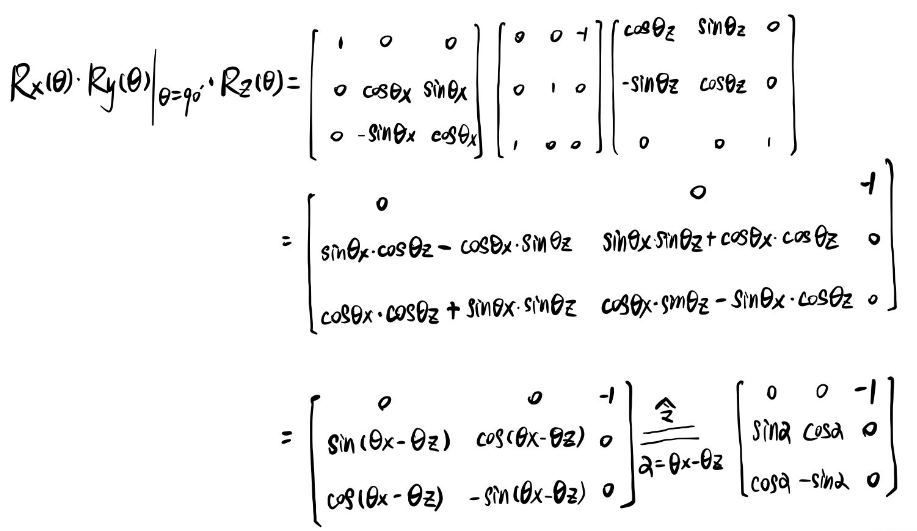 Rx(θ)·Ry(θ)|θ=90°·Rz(θ)= [1 0 0; 0 cosθx sinθx; 0 -sinθx cosθx] [0 0 -1; 0 1 0; 1 0 0] [cosθz sinθz 0; -sinθz cosθz 0; 0 0 1]
= [0 0 -1; sinθx·cosθz - cosθx·sinθz sinθx·sinθz + cosθx·cosθz 0; cosθx·cosθz + sinθx·sinθz cosθx·sinθz - sinθx·cosθz 0]
= [0 0 -1; sin(θx-θz) cos(θx-θz) 0; cos(θx-θz) -sin(θx-θz) 0] 令 α=θx-θz [0 0 -1; sinα cosα 0; cosα -sinα 0]